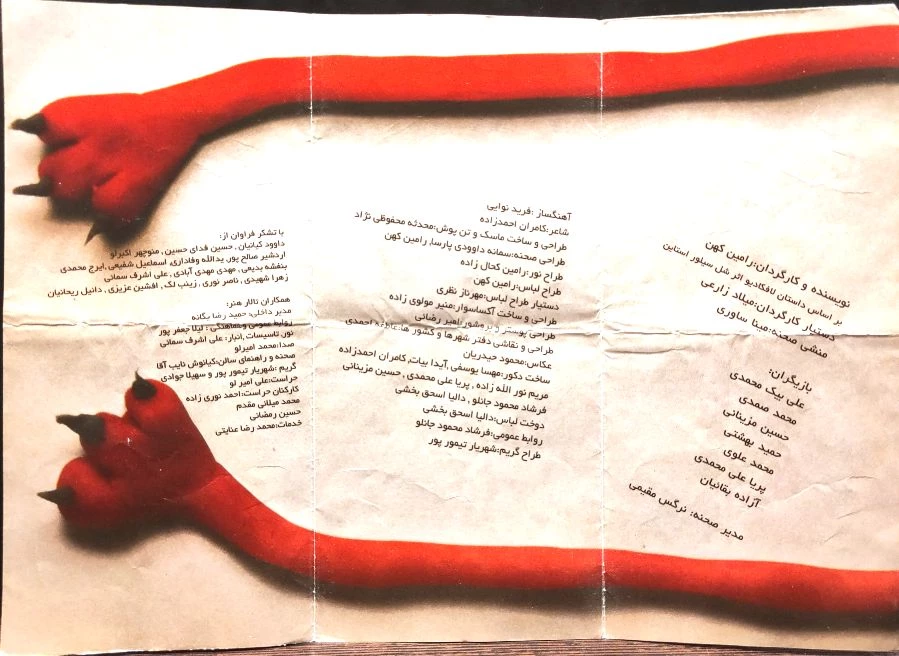 نویسنده و کارگردان:رامین کهن
بر اساس داستان لافکادیو اثر شل سیلور استاین
دستیار کارگردان:میلاد زارعی
منشی صحنه:مینا ساوری
بازیگران:
علی بیک محمدی
محمد صمدی
حسین مزینانی
حمید بهشتی
محمد علوی
پریا علی محمدی
آزاده بقائیان
مدیر صحنه: نرگس مقیمی
آهنگساز :فرید نوایی
شاعر:کامران احمدزاده
طراحی و ساخت ماسک و تن پوش:محدثه محفوظی نژاد
طراحی صحنه:سمانه داوودی پارسا, رامین کهن
طراح نور:رامین کحال زاده
طراح لباس:رامین کهن
دستیار طراح لباس:مهرناز نظری
طراحی و ساخت آکساسوار:منیر مولوی زاده
طراحی پوستر و بروشور:امیر رضائی
طراحی و نقاشی دفتر شهرها و کشور ها: احمدی
عکاس:محمود حیدریان
ساخت دکور:مهسا یوسفی, آیدا بیات, کامران احمدزاده
مریم نور الله زاده , پریا علی محمدی , حسین مزینانی
فرشاد محمود جانلو , دالیا اسحق بخشی
دوخت لباس:دالیا اسحق بخشی
روابط عمومی:فرشاد محمود جانلو
طراح گریم:شهریار تیمور پور
با تشکر فراوان از:
داوود کیانیان , حسین فدای حسین , منوچهر اکبرلو
اردشیر صالح پور, یدالله وفاداری, اسماعیل شفیعی,ایرج محمدی
بنفشه بدیعی, مهدی مهدی آبادی , علی اشرف سمائی
زهرا شهیدی , ناصر نوری , زینب لک , افشین عزیزی , دانیل ریحانیان
همکاران تالار هنر:
مدیر داخلی: حمید رضا یگانه
روابط عمومی و هماهنگی : لیلا جعفر پور
نور, تاسیسات ,انبار: علی اشرف سمائی
صدا:محمد امیرلو
صحنه و راهنمای سالن:کیانوش نایب آقا
گریم :شهریار تیمور پور و سهیلا جوادی
حراست:علی امیر لو
کارکنان حراست:احمد نوری زاده
محمد میلانی مقدم
حسین رمضانی
خدمات:محمد رضا عنایتی